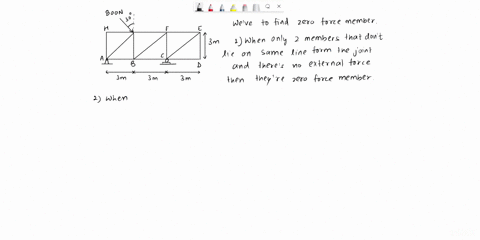 800N
30°
H
F
E
3m
A
B
C
D
3m
3m
3m
We've to find zero force member.
1) When only 2 members that don't
lie on same line form the joint
and there's no external force
then they're zero force member
2) When